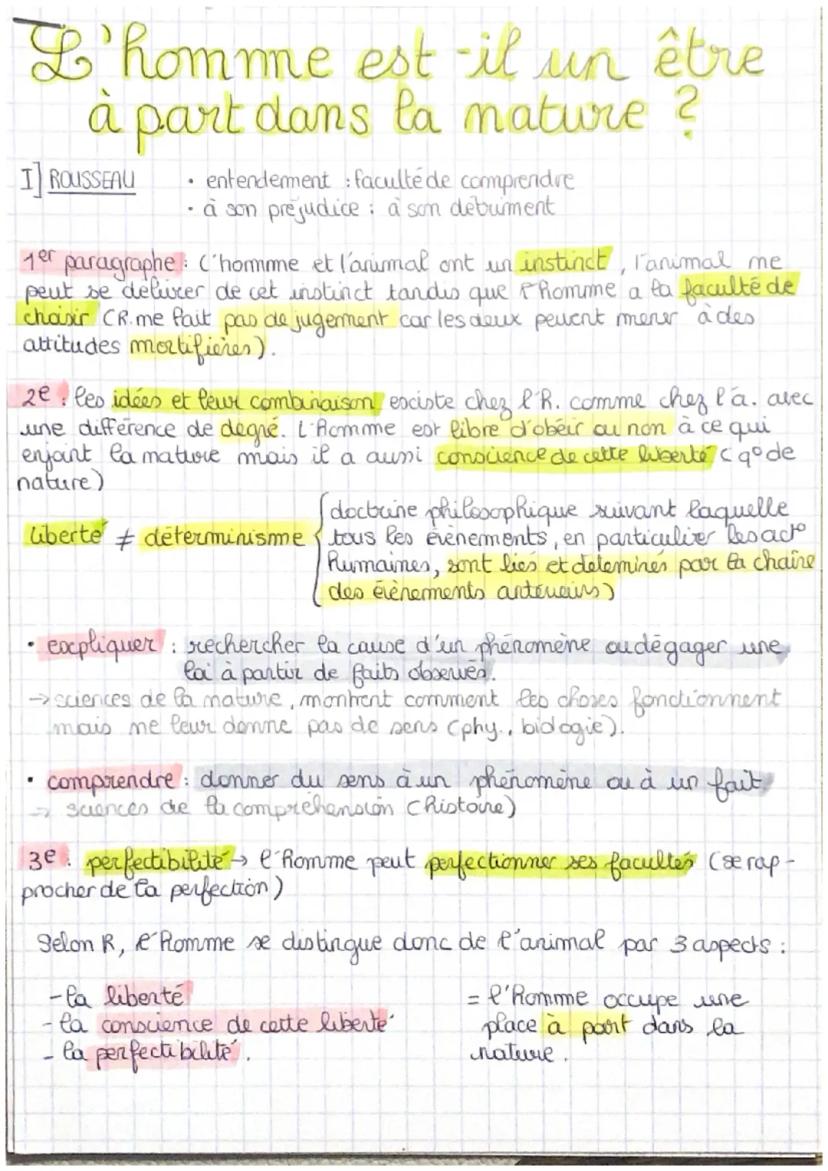 L'homme est-il un être
à part dans la nature ?
I] ROUSSEAU
• entendement : faculté de comprendre
• à son préjudice : à son détriment
1er paragraphe : L'homme et l'animal ont un instinct, l'animal ne
peut se délivrer de cet instinct tandis que l'homme a la faculté de
choisir (R. ne fait pas de jugement car les deux peuvent mener à des
attitudes mortifières).
2e : les idées et leur combinaison existe chez l'R. comme chez l'a. avec
une différence de degré. L'Homme est libre d'obéir ou non à ce qui
enjoint la nature mais il a aussi conscience de cette liberté (q° de
nature)
liberté ≠ déterminisme { doctrine philosophique suivant laquelle
tous les évènements, en particulier les act°
humaines, sont liés et détérminés par la chaîne
des évènements antérieurs)
• expliquer : rechercher la cause d'un phénomène ou dégager une
loi à partir de faits observés.
→ sciences de la nature, montrent comment les choses fonctionnent
mais ne leur donne pas de sens (phy., biologie).
• comprendre : donner du sens à un phénomène ou à un fait
→ sciences de la compréhension (histoire)
3e : perfectibilité → l'Homme peut perfectionner ses facultés (se rap-
procher de la perfection)
Selon R, l'Homme se distingue donc de l'animal par 3 aspects :
- la liberté
- la conscience de cette liberté
- la perfectibilité.
= l'Homme occupe une
place à part dans la
nature.